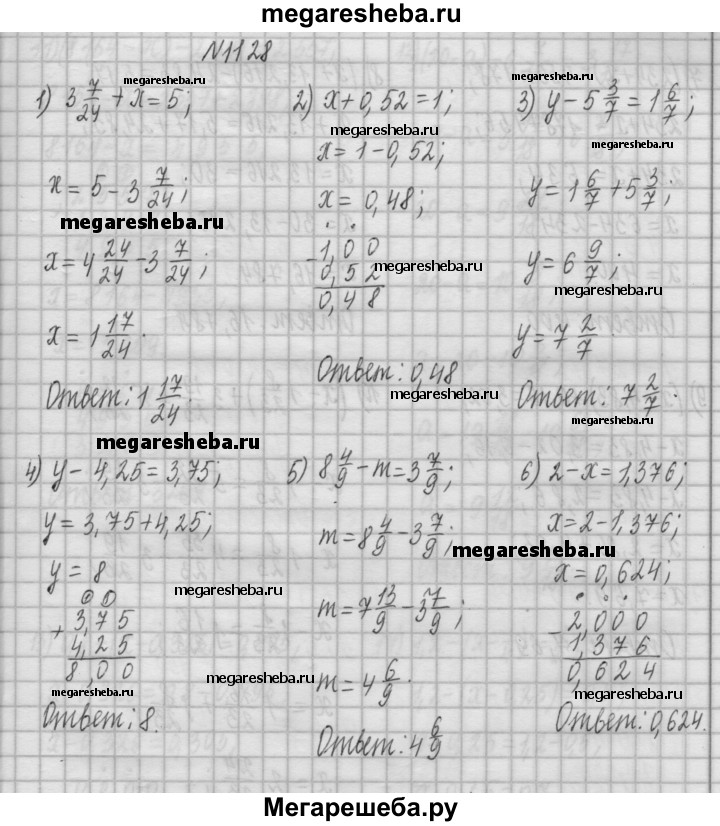 megaresheba.ru
N1128
megaresheba.ru
1) 3 7/24 + x = 5;
x = 5 - 3 7/24;
megaresheba.ru
x = 4 24/24 - 3 7/24;
x = 1 17/24.
Ответ: 1 17/24.
megaresheba.ru
2) x + 0,52 = 1;
megaresheba.ru
x = 1 - 0,52;
x = 0,48;
- 1,00
0,52
megaresheba.ru
0,48
Ответ: 0,48
megaresheba.ru
megaresheba.ru
3) y - 5 3/7 = 1 6/7;
y = 1 6/7 + 5 3/7;
y = 6 9/7;
megaresheba.ru
y = 7 2/7.
Ответ: 7 2/7.
megaresheba.ru
4) y - 4,25 = 3,75;
y = 3,75 + 4,25;
y = 8
megaresheba.ru
+ 3,75
4,25
8,00
megaresheba.ru
Ответ: 8.
5) 8 4/9 - m = 3 7/9;
m = 8 4/9 - 3 7/9;
m = 7 13/9 - 3 7/9;
m = 4 6/9.
megaresheba.ru
Ответ: 4 6/9
6) 2 - x = 1,376;
x = 2 - 1,376;
megaresheba.ru
x = 0,624;
- 2,000
1,376
0,624
megaresheba.ru
Ответ: 0,624.
Мегарешеба.ру